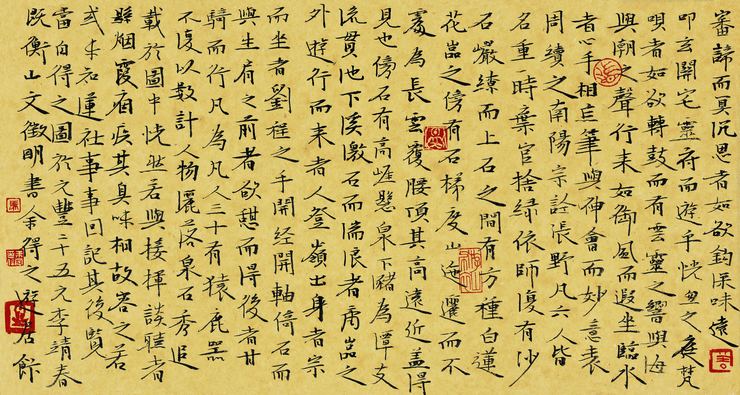 審諦而具沉思者如欲鈎深味遠
叩玄關宅靈府而遊乎恍忽之庭梵
唄者如欲轉鼓而有雲靈之響與海
與潮之聲行来如御風而遐坐臨水
者心手相忘筆與神會而妙意表
周續之南陽宗詮張野凡六人皆
名重一時棄官捨緑依師復有沙
石巖縁而上石之間有方種白蓮
花嵓之傍有石梯度山迤邐而不
處為長雲覆腰頂其高遠近蓋得
見也傍石有高崖懸泉下瀦為潭支
流貫池下溪激石而湍浪者虎嵓之
外遊行而来者人登嶺出身者宗
而坐者劉程之手開経開軸倚石而
與生肩之前者欲憇而得後者甘
騎而行凡為凡人三十有猿鹿器
不復以数計人物灑落泉石秀追
載於圖中恍然若與接揮談雅者
烟霞痼疾其真味相故岩之若
或未知蓮社事事回記其後覧
當自得之圖於元豐三十五元李靖春
既衡山文徵明書余得之居